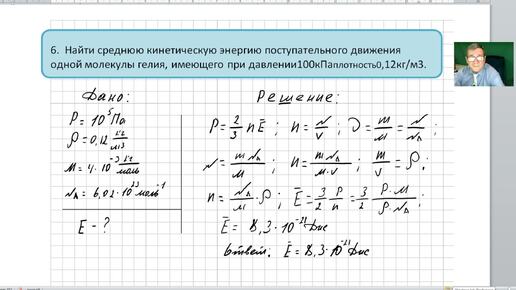 6. Найти среднюю кинетическую энергию поступательного движения
одной молекулы гелия, имеющего при давлении100кПаплотность0,12кг/м3.
Дано:
P = 10⁵ Па
ρ = 0,12 кг/м³
M = 4·10⁻³ кг/моль
N_A = 6,02·10²³ моль⁻¹
E - ?
Решение:
P = 2/3 n E̅ ; n = N/V ; ν = m/M = N/N_A ;
N = m N_A/M ; n = m N_A/M·V ; m/V = ρ ;
n = N_A/M · ρ ; E̅ = 3/2 P/n = 3/2 P·M/ρ·N_A ;
E̅ = 8,3·10⁻²¹ Дж
Ответ: E̅ = 8,3·10⁻²¹ Дж